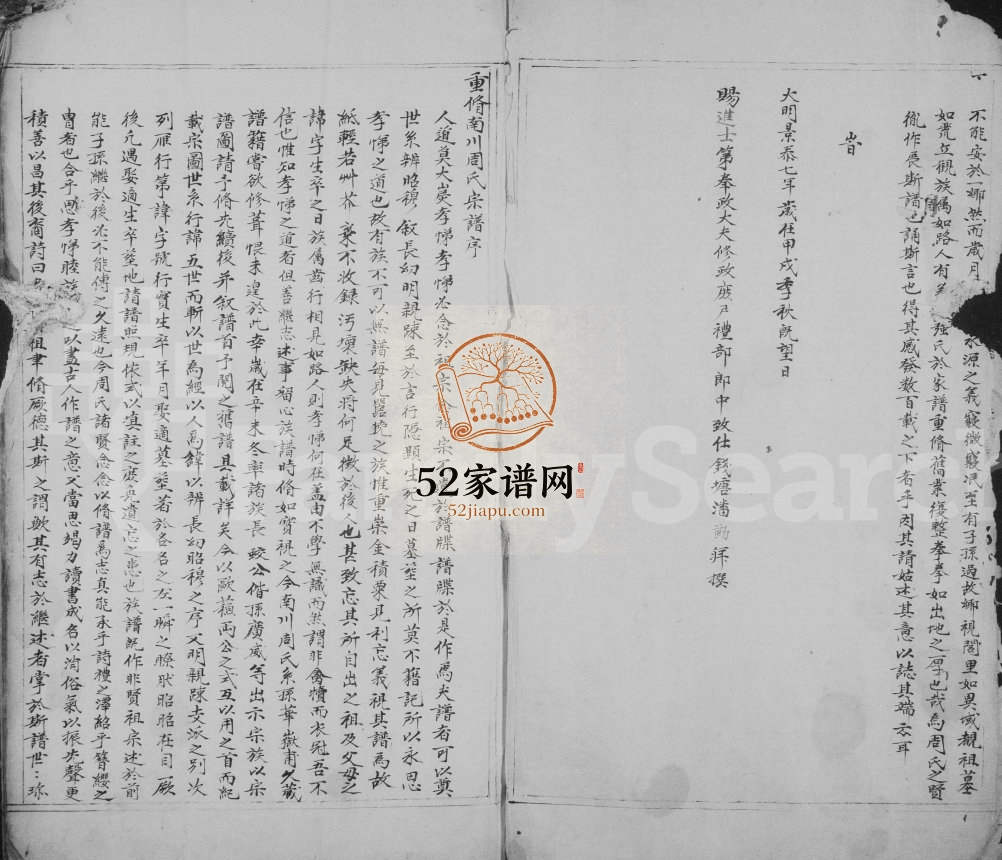 不能安於一鄉然而歲月 水源之義寢微寢泯至有子孫過故鄉視閭里如異域覩祖墓
如荒丘觀族屬如路人有 強氏於家譜重脩舊業復整拳拳如出地之厚也哉為周氏之賢
胤作展斯譜也誦斯言也得其感發数百載之下者乎因其請姑述其意以誌其端云耳
旹
大明景泰七年歲在甲戌季秋既望日
賜進士第奉政大夫修政庶尹禮部郎中致仕錢塘潘勤拜撰
重脩南川周氏宗譜序
人道莫大矣孝悌孝悌必念於祖宗 祖宗不 於譜牒譜牒於是作焉夫譜者可以奠
世系辨昭穆敘長幼明親踈至於言行隱顯生死之日墓塋之所莫不籍記所以永思
孝悌之道也故有族不可以無譜每見 之族惟重案金積粟見利忘義視其譜為故
紙輕若艸芥棄不收録污壞缺失將何足徵於後人也甚致忘其所自出之祖及父母之
諱字生卒之日族屬齒行相見如路人則孝悌何在盖由不學無識而然謂非禽犢而衣冠吾不
信也惟知孝悌之道者但善繼志述事留心族譜時脩如寶視之今南川周氏系孫華嶽甫久藏
譜籍嘗欲修葺恨未遑於此幸歲在辛未冬率諸族長 公偕孫廣威等出示宗族以宗
譜圖請予脩先續後并叙譜首予閱之舊譜具載詳矣今以歐蘓兩公之式互以用之首而紀
載宗圖世系行諱五世而斬以世為經以人為緯以辨長幼昭穆之序又明親踈支派之别次
列雁行第諱字號行實生卒年月娶適墓塋著於各名之左一瞬之瞭肰昭昭在目厥
後凡遇娶適生卒塋地請譜照規依式以填註之庶無遺忘之患也族譜既作非賢祖宗述於前
能子孫繼於後必不能傳之久遠也今周氏諸賢念念以脩譜為志真能承乎詩禮之澤紹乎簪纓之
胄者也合乎思孝悌睦族 之以盡古人作譜之意又當思竭力讀書成名以淘俗氣以振先聲更
積善以昌其後裔詩曰 祖聿脩厥德其斯之謂歟其有志於繼述者掌於斯譜世世珍
52家谱网
52jiapu.com